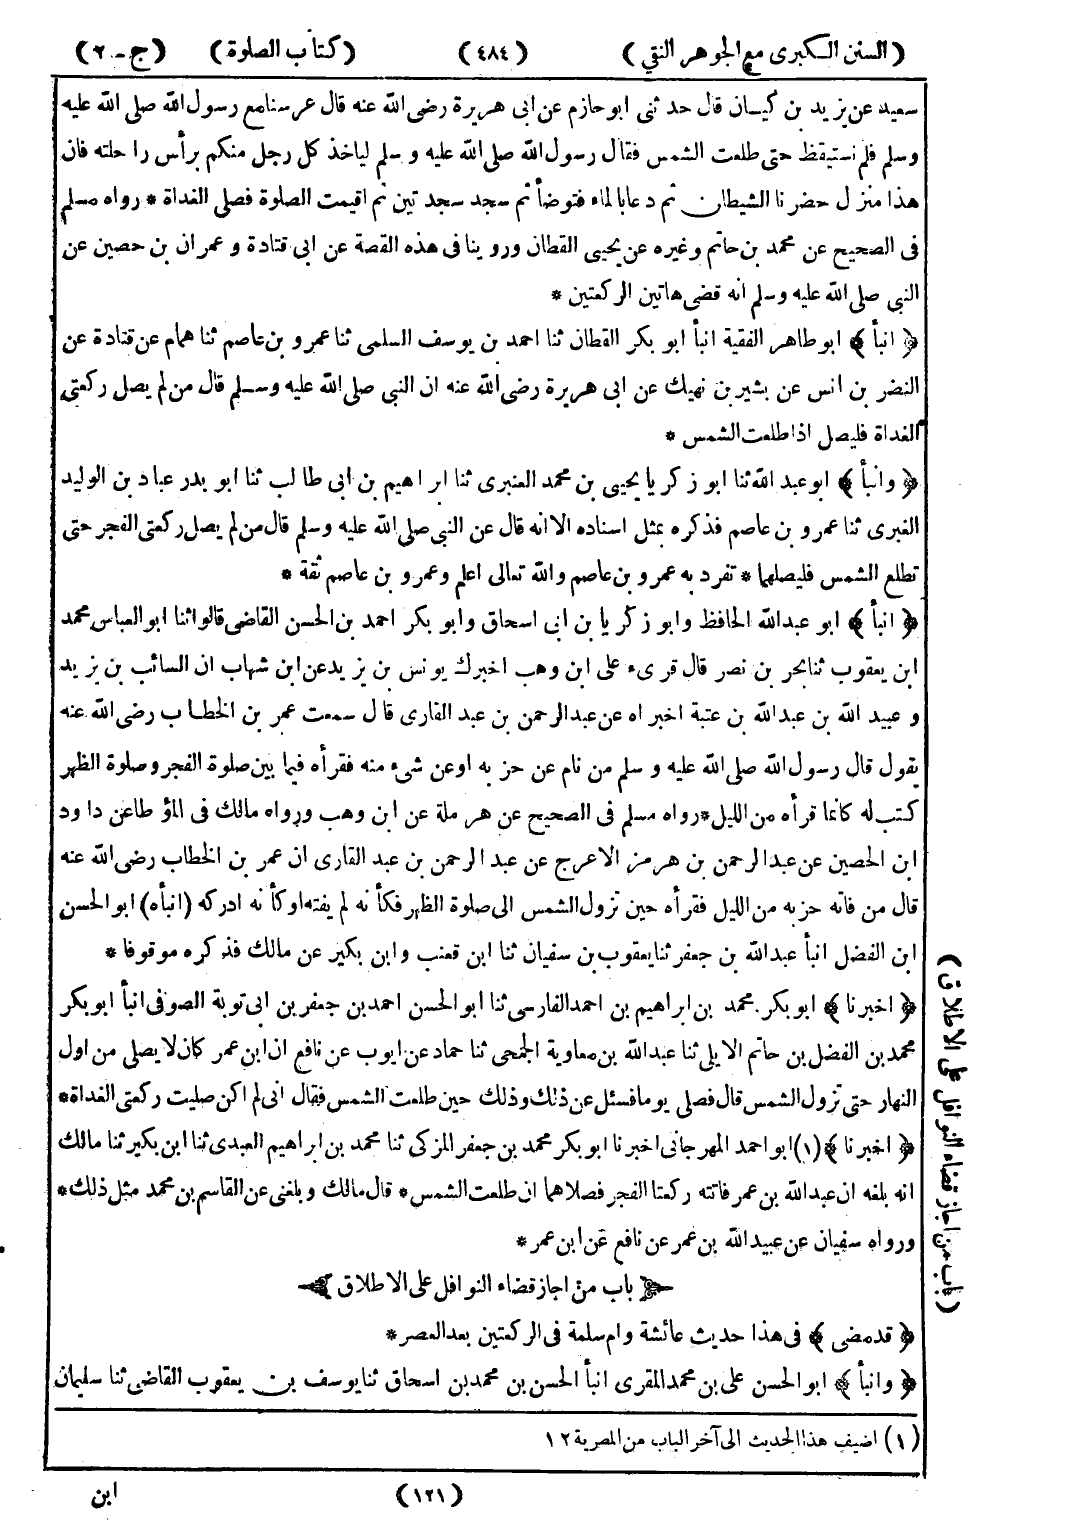 (السنن الكبرى مع الجوهر النقي) (٤٨٤) (كتاب الصلوة) (ج - ٢)
سعيد عن يزيد بن كيسان قال حدثنى ابو حازم عن ابى هريرة رضى الله عنه قال عرسنا مع رسول الله صلى الله عليه
وسلم فلم نستيقظ حتى طلعت الشمس فقال رسول الله صلى الله عليه وسلم لياخذ كل رجل منكم برأس راحلته فان
هذا منزل حضرنا الشيطان ثم دعا بالماء فتوضأ ثم سجد سجدتين ثم اقيمت الصلوة فصلى الغداة * رواه مسلم
فى الصحيح عن محمد بن حاتم وغيره عن يحيى القطان وروينا فى هذه القصة عن ابى قتادة وعمران بن حصين عن
النبى صلى الله عليه وسلم انه قضى هاتين الركعتين *
﴿ انبأ ﴾ ابو طاهر الفقيه انبأ ابو بكر القطان ثنا احمد بن يوسف السلمى ثنا عمرو بن عاصم ثنا همام عن قتادة عن
النضر بن انس عن بشير بن نهيك عن ابى هريرة رضى الله عنه ان النبى صلى الله عليه وسلم قال من لم يصل ركعتى
الغداة فليصل اذا طلعت الشمس *
﴿ وانبأ ﴾ ابو عبد الله ثنا ابو زكريا يحيى بن محمد العنبرى ثنا ابراهيم بن ابى طالب ثنا ابو بدر عباد بن الوليد
الغبرى ثنا عمرو بن عاصم فذكره بمثل اسناده الا انه قال عن النبى صلى الله عليه وسلم قال من لم يصل ركعتى الفجر حتى
تطلع الشمس فليصلها * تفرد به عمرو بن عاصم والله تعالى اعلم وعمرو بن عاصم ثقة *
﴿ انبأ ﴾ ابو عبد الله الحافظ وابو زكريا بن ابى اسحاق وابو بكر احمد بن الحسن القاضى قالوا ثنا ابو العباس محمد
ابن يعقوب ثنا بحر بن نصر قال قرىء على ابن وهب اخبرك يونس بن يزيد عن ابن شهاب ان السائب بن يزيد
وعبيد الله بن عبد الله بن عتبة اخبراه عن عبد الرحمن بن عبد القارى قال سمعت عمر بن الخطاب رضى الله عنه
يقول قال رسول الله صلى الله عليه وسلم من نام عن حزبه او عن شىء منه فقرأه فيما بين صلوة الفجر وصلوة الظهر
كتب له كانما قرأه من الليل * رواه مسلم فى الصحيح عن هرملة عن ابن وهب ورواه مالك فى المؤطا عن داود
ابن الحصين عن عبد الرحمن بن هرمز الاعرج عن عبد الرحمن بن عبد القارى ان عمر بن الخطاب رضى الله عنه
قال من فاته حزبه من الليل فقرأه حين تزول الشمس الى صلوة الظهر فكأنه لم يفته او كأنه ادركه (انبأه) ابو الحسن
ابن الفضل انبأ عبد الله بن جعفر ثنا يعقوب بن سفيان ثنا ابن قعنب وابن بكير عن مالك فذكره موقوفا *
﴿ اخبرنا ﴾ ابو بكر محمد بن ابراهيم بن احمد الفارسى ثنا ابو الحسن احمد بن جعفر بن ابى توبة الصوفى انبأ ابو بكر
محمد بن الفضل بن حاتم الايلى ثنا عبد الله بن معاوية الجمحى ثنا حماد عن ايوب عن نافع ان ابن عمر كان لا يصلى من اول
النهار حتى تزول الشمس قال فصلى يوما فسئل عن ذلك وذلك حين طلعت الشمس فقال انى لم اكن صليت ركعتى الغداة *
﴿ اخبرنا ﴾ (١) ابو احمد المهرجانى اخبرنا ابو بكر محمد بن جعفر المزكى ثنا محمد بن ابراهيم العبدى ثنا ابن بكير ثنا مالك
انه بلغه ان عبد الله بن عمر فاتته ركعتا الفجر فصلاهما ان طلعت الشمس * قال مالك وبلغنى عن القاسم بن محمد مثل ذلك *
ورواه سفيان عن عبيد الله بن عمر عن نافع عن ابن عمر *
باب من اجاز قضاء النوافل على الاطلاق
﴿ قد مضى ﴾ فى هذا حديث عائشة وام سلمة فى الركعتين بعد العصر *
﴿ وانبأ ﴾ ابو الحسن على بن محمد المقرى انبأ الحسن بن محمد بن اسحاق ثنا يوسف بن يعقوب القاضى ثنا سليمان
(باب من اجاز قضاء النوافل على الاطلاق)
(١) اضيف هذا الحديث الى آخر الباب من المصرية ١٢
(١٢١) ابن